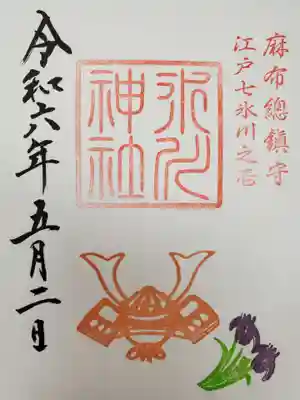 麻布總鎮守
江戸七氷川之壱
氷川神社
令和六年五月二日